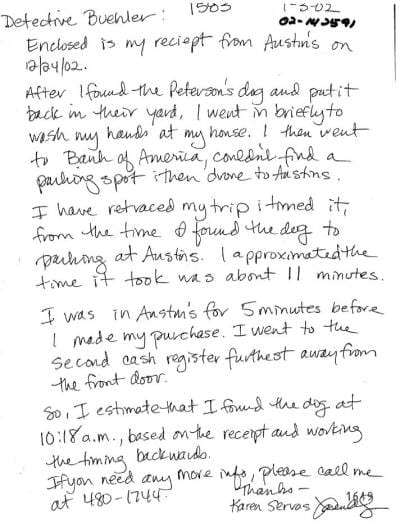 1503
1-3-02
02-142591
Detective Buehler:
Enclosed is my reciept from Austin's on
12/24/02.
After I found the Peterson's dog and put it
back in their yard, I went in briefly to
wash my hands at my house. I then went
to Bank of America, couldn't find a
parking spot & then drove to Austins.
I have retraced my trip & timed it,
from the time I found the dog to
parking at Austins. I approximated the
time it took was about 11 minutes.
I was in Austin's for 5 minutes before
I made my purchase. I went to the
second cash register furthest away from
the front door.
So, I estimate that I found the dog at
10:18 a.m., based on the receipt and working
the timing backwards.
If you need any more info, please call me
at 480-1744.
Thanks -
Karen Servas
1649